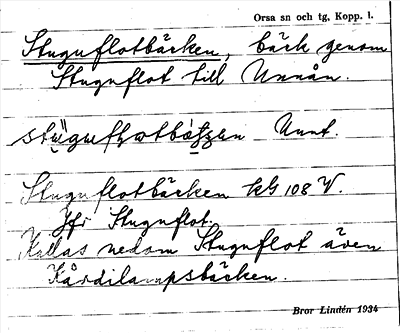 Orsa sn och tg. Kopp. l.
Stuguflotbäcken, bäck genom
Stuguflot till Unnån.
Unnt.
Stuguflotbäcken kG 108 V.
Jfr Stuguflot.
Kallas nedom Stuguflot även
Kårdilampsbäcken.
Bror Lindén 1934